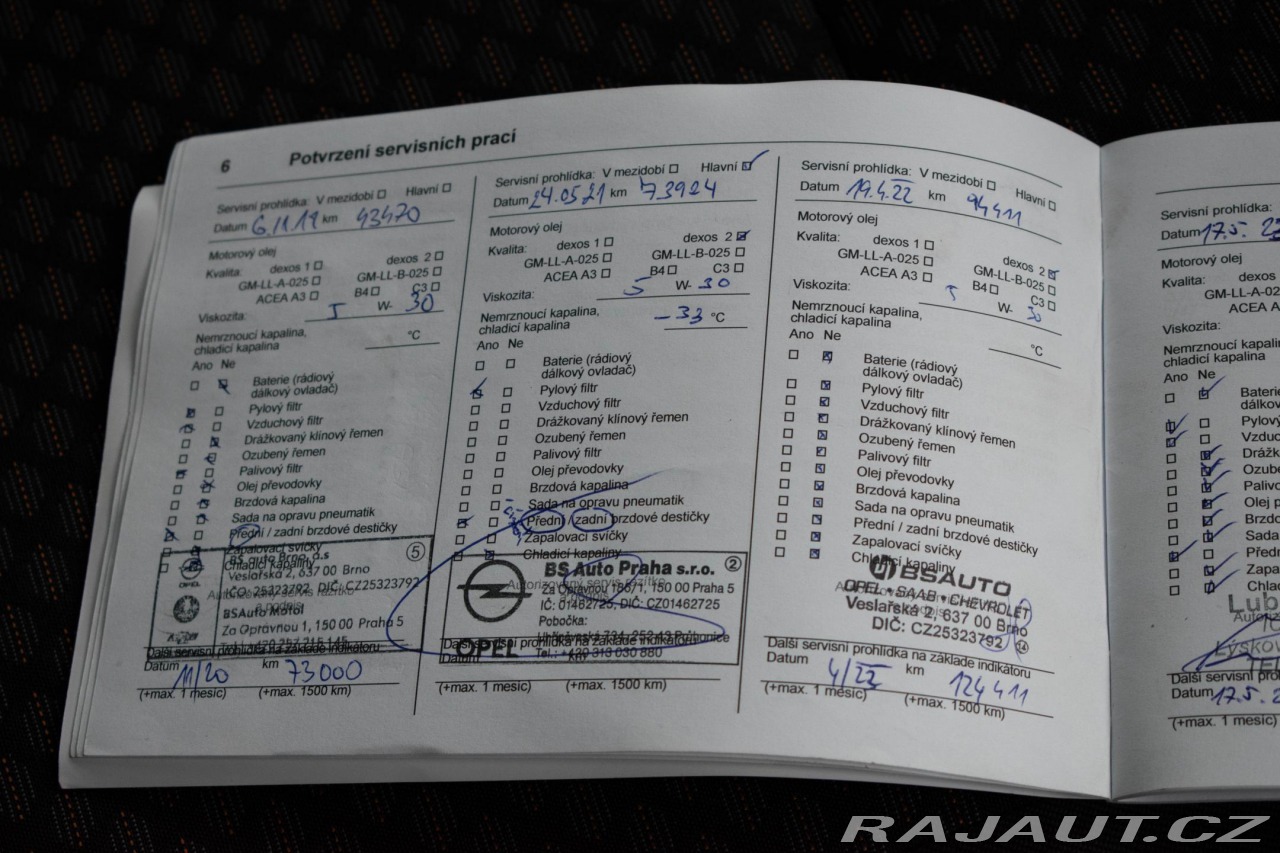 6 Potvrzení servisních prací
Servisní prohlídka: V mezidobí Hlavní
Datum 6.11.19 km 43470
Motorový olej
Kvalita: dexos 1 dexos 2
GM-LL-A-025 GM-LL-B-025
ACEA A3 B4 C3
Viskozita: 5 W- 30
Nemrznoucí kapalina,
chladicí kapalina °C
Ano Ne
Baterie (rádiový
dálkový ovladač)
Pylový filtr
Vzduchový filtr
Drážkovaný klínový řemen
Ozubený řemen
Palivový filtr
Olej převodovky
Brzdová kapalina
Sada na opravu pneumatik
Přední / zadní brzdové destičky
Zapalovací svíčky
Chladicí kapaliny
5
BS auto Brno, a.s
Veslařská 2, 637 00 Brno
IČO: 25323792, DIČ: CZ25323792
Autorizovaný servis razítko
a podpis
BSAuto Motol
Za Opravnou 1, 150 00 Praha 5
OPEL
Další servisní prohlídka na základě indikátoru
Datum 11/20 km 73000
(+max. 1 měsíc) (+max. 1500 km)
Servisní prohlídka: V mezidobí Hlavní
Datum 24.05.21 km 73924
Motorový olej
Kvalita: dexos 1 dexos 2
GM-LL-A-025 GM-LL-B-025
ACEA A3 B4 C3
Viskozita: 5 W- 30
Nemrznoucí kapalina,
chladicí kapalina -33 °C
Ano Ne
Baterie (rádiový
dálkový ovladač)
Pylový filtr
Vzduchový filtr
Drážkovaný klínový řemen
Ozubený řemen
Palivový filtr
Olej převodovky
Brzdová kapalina
Sada na opravu pneumatik
Přední / zadní brzdové destičky
Zapalovací svíčky
Chladicí kapaliny
BS Auto Praha s.r.o. 2
Autorizovaný servis razítko
Za Opravnou 186/1, 150 00 Praha 5
IČ: 01462725, DIČ: CZ01462725
Pobočka:
OPEL
Tel.: +420 313 030 880
Další servisní prohlídka na základě indikátoru
Datum km
(+max. 1 měsíc) (+max. 1500 km)
Servisní prohlídka: V mezidobí Hlavní
Datum 19.4.22 km 94411
Motorový olej
Kvalita: dexos 1 dexos 2
GM-LL-A-025 GM-LL-B-025
ACEA A3 B4 C3
Viskozita: 5 W- 30
Nemrznoucí kapalina,
chladicí kapalina °C
Ano Ne
Baterie (rádiový
dálkový ovladač)
Pylový filtr
Vzduchový filtr
Drážkovaný klínový řemen
Ozubený řemen
Palivový filtr
Olej převodovky
Brzdová kapalina
Sada na opravu pneumatik
Přední / zadní brzdové destičky
Zapalovací svíčky
Chladicí kapaliny
BSAUTO
OPEL • SAAB • CHEVROLET
Veslařská 2, 637 00 Brno
DIČ: CZ25323792 14
Další servisní prohlídka na základě indikátoru
Datum 4/23 km 124411
(+max. 1 měsíc) (+max. 1500 km)
Servisní prohlídka:
Datum 17.5. 23
Motorový olej
Kvalita: dexos
GM-LL-A-02
ACEA A
Viskozita:
Nemrznoucí kapalin
chladicí kapalina
Ano Ne
Baterie
dálkov
Pylový
Vzduc
Drážk
Ozube
Palivo
Olej p
Brzdo
Sada
Předn
Zapa
Chla
Lub
Autoriz
Lyskov
Další servisní pro
Datum 17.5. 2
(+max. 1 měsíc)
RAJAUT.CZ